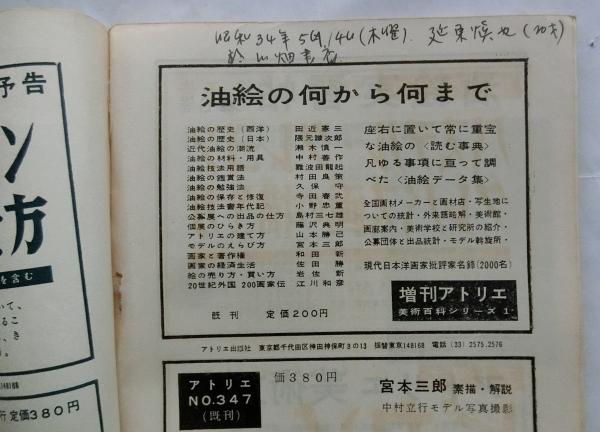 昭和34年5月14日(木曜).
油絵の何から何まで
油絵の歴史(西洋) 田近憲三
油絵の歴史(日本) 隈元謙次郎
近代油絵の潮流 瀬木慎一
油絵の材料・用具 中村善作
油絵技法用語 難波田龍起
油絵の鑑賞法 村田良策
油絵の勉強法 久保守
油絵の保存と修復 寺田春弌
油絵技法書年代記 小野忠重
公募展への出品の仕方 島村三七雄
個展のひらき方 藤沢典明
アトリエの建て方 山本勝己
モデルのえらび方 宮本三郎
画家と著作権 和田新
画家の経済生活 佐田勝
絵の売り方・買い方 岩佐新
20世紀外国200画家伝 江川和彦
座右に置いて常に重宝
な油絵の〈読む事典〉
凡ゆる事項に亘って調
べた〈油絵データ集〉
全国画材メーカーと画材店・写生地に
ついての統計・外来語略解・美術館・
画廊案内・美術学校と研究所の紹介・
公募団体と出品統計・モデル斡旋所・
現代日本洋画家批評家名録(2000名)
既刊 定価200円
増刊アトリエ
美術百科シリーズ1
アトリエ出版社 東京都千代田区神田神保町3の13 振替東京148168 電話(33)2575.2576
アトリエ
NO.347
(既刊)
価380円
宮本三郎 素描・解説
中村立行モデル写真撮影
予告
ン
方
を含む
いて、
るこ
、き
る。
148168
定価380円